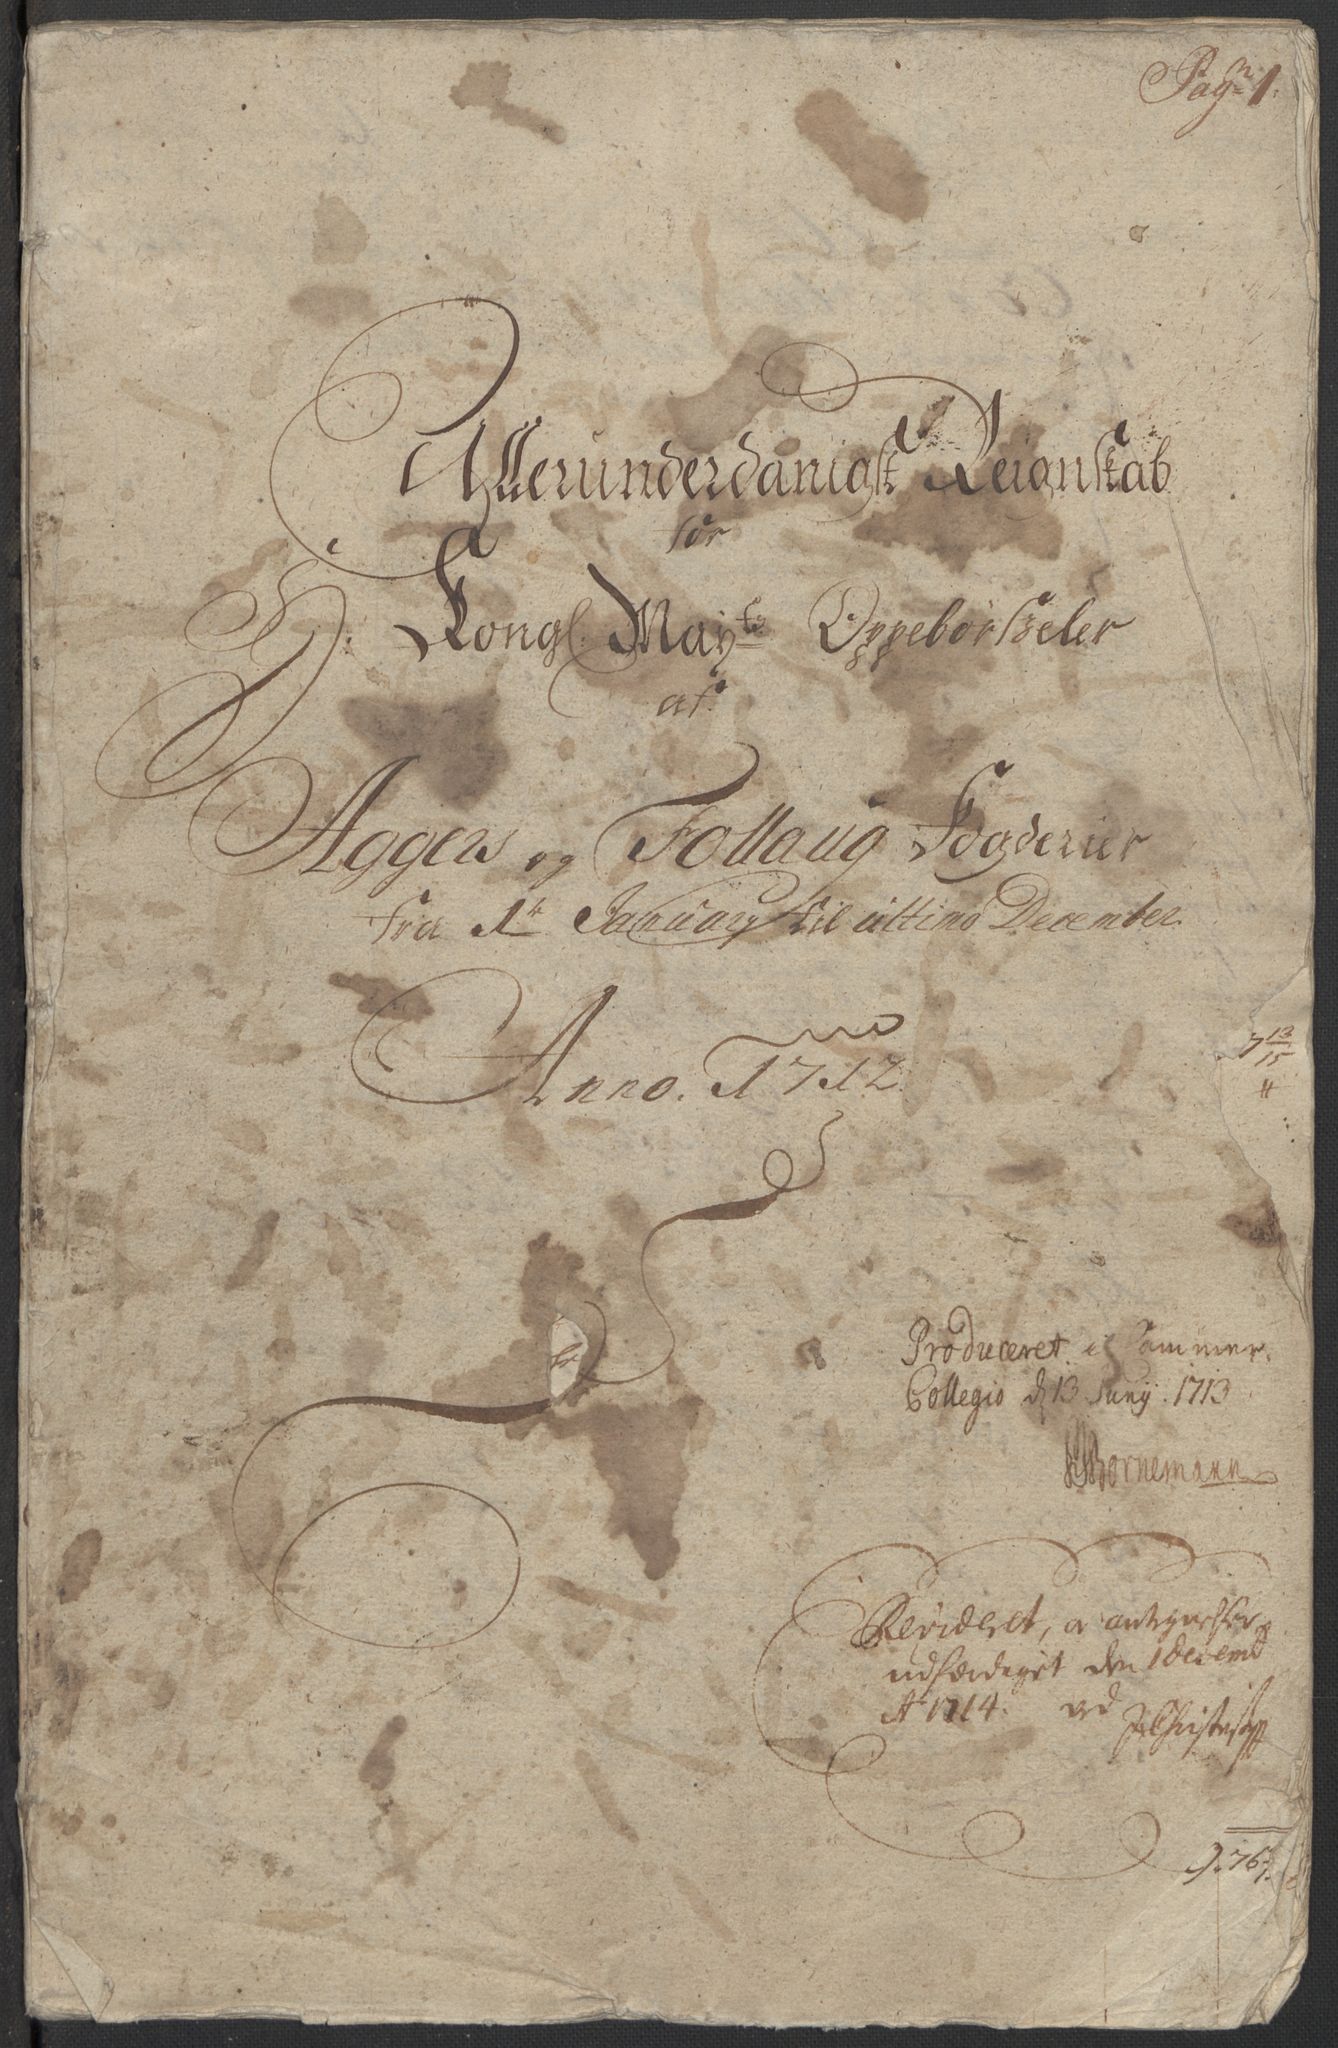 Pag: 1.
Allerunderdanigst Reignskab
for
Kongl. Mayts Oppebørtzeler
af
Aggers og Follaug Fogderier
fra 1te January til ultimo December
Anno. 1712.
7 13/15
Produceret i Cammer-
Collegio d 13 Juny. 1713
Bornemann
Revideret, og antegnelser
udferdiget den 1 Decemb
Ao 1714. ved